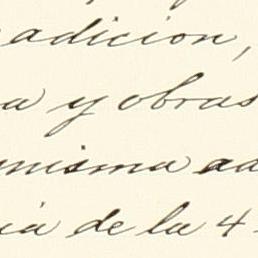 adicion,
a y obras
misma ad
ia de la 4